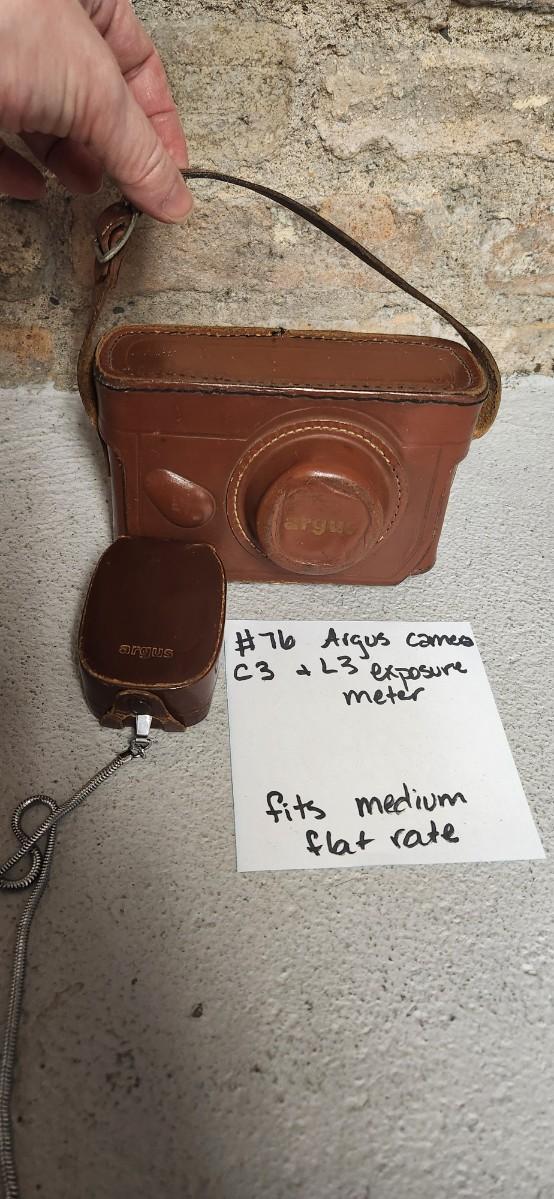 argus
argus
#76 Argus camera
C3 + L3 exposure
meter
fits medium
flat rate